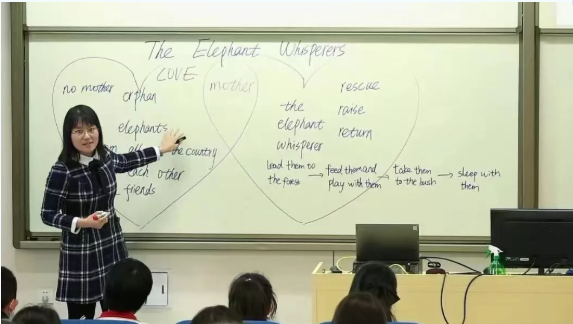 The Elephant Whisperers
LOVE
no mother
orphan
elephants
the country
each other
friends
mother
rescue
the
raise
elephant
return
whisperer
lead them to
the forest
→ feed them and
play with them
→ take them
to the bush
→ sleep with
them